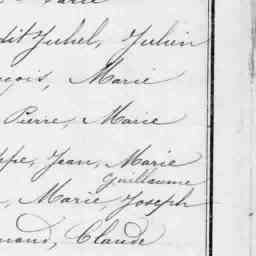 Marie
dit Juhel, Julien
çois, Marie
Pierre, Marie
ppe, Jean, Marie
Guillaume
, Marie, Joseph
mand, Claude